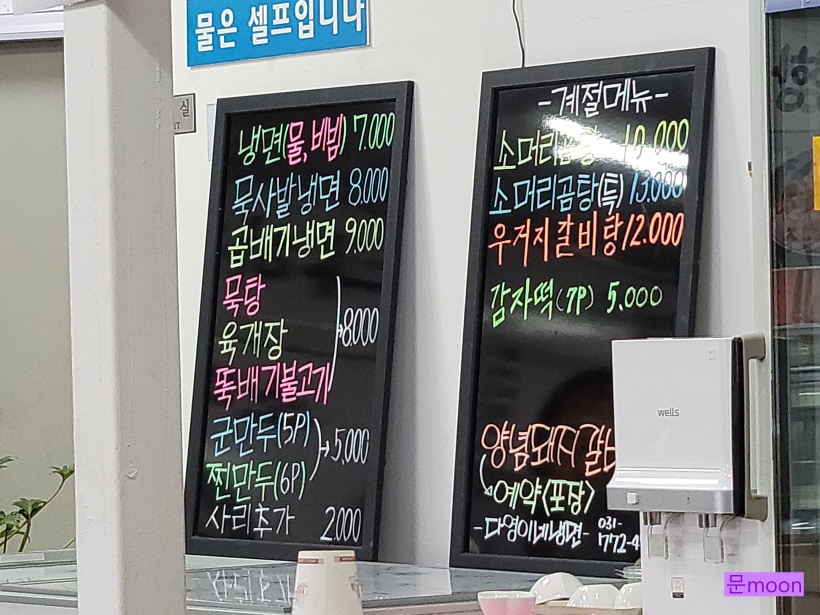 물은 셀프입니다
실
냉면(물, 비빔) 7.000
묵사발냉면 8.000
곱배기냉면 9.000
묵탕
육개장
뚝배기불고기
8.000
군만두(5P)
찐만두(6P)
5.000
사리추가 2.000
-계절메뉴-
소머리곰탕 10.000
소머리곰탕(특) 13.000
우거지갈비탕 12.000
감자떡(7P) 5.000
양념돼지갈비
예약<포장>
-다영이네냉면- 031-
772-4
wells
문moon